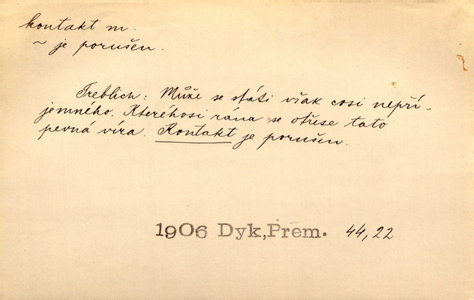 kontakt m.
~ je porušen.
Treblich: Může se státi však cosi nepří-
jemného. Kteréhosi rána se otřese tato
pevná víra. Kontakt je porušen.
1906 Dyk,Prem. 44,22